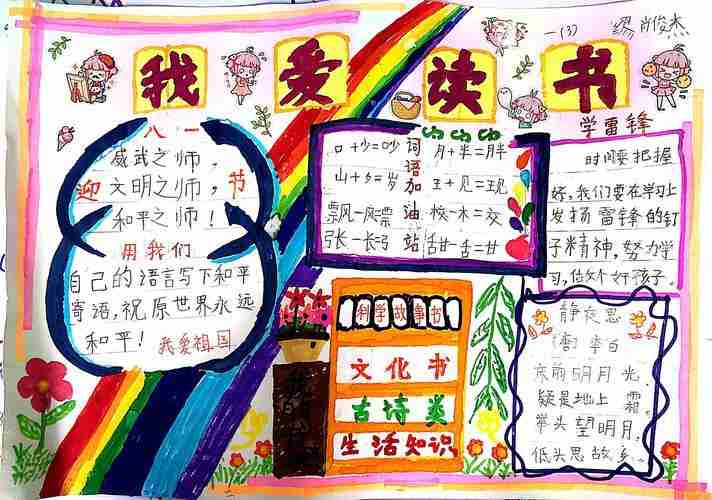 一(3) 肖俊杰
我爱读书
八一
威武之师,
迎 文明之师, 节
和平之师!
用我们
自己的语言写下和平
寄语,祝原世界永远
和平! 我爱祖国
词语加油站
口+少=吵 月+半=胖
山+夕=岁 王+见=现
飘风-风=票 校-木=交
张-长=弓 甜-舌=甘
科学故事书
文化书
古诗类
生活知识
学雷锋
时间要把握
好,我们要在学习上
发扬雷锋的钉
子精神,努力学
习,做个好孩子。
静夜思
(唐)李白
床前明月光,
疑是地上霜。
举头望明月,
低头思故乡。